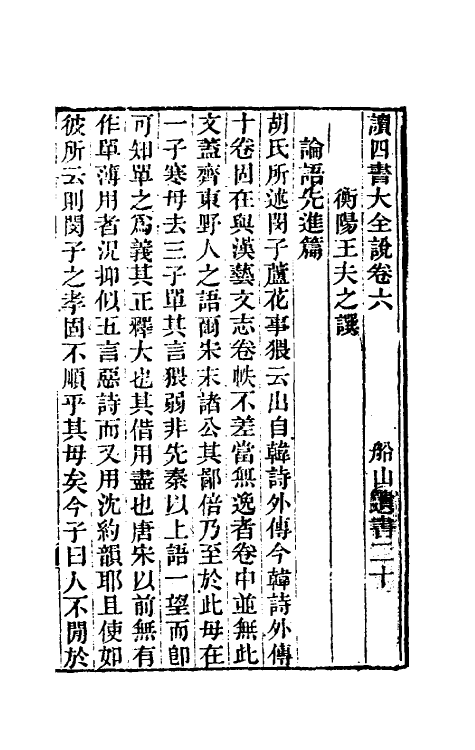 讀四書大全說卷六
船山遺書二十
衡陽王夫之譔
論語先進篇
胡氏所述閔子蘆花事猥云出自韓詩外傳今韓詩外傳
十卷固在與漢藝文志卷帙不差當無逸者卷中並無此
文蓋齊東野人之語爾宋末諸公其鄙倍乃至於此毋在
一子寒母去三子單其言猥弱非先秦以上語一望而卽
可知單之爲義其正釋大也其借用盡也唐宋以前無有
作單薄用者況抑似五言惡詩而又用沈約韻耶且使如
彼所云則閔子之孝固不順乎其母矣今子曰人不閒於